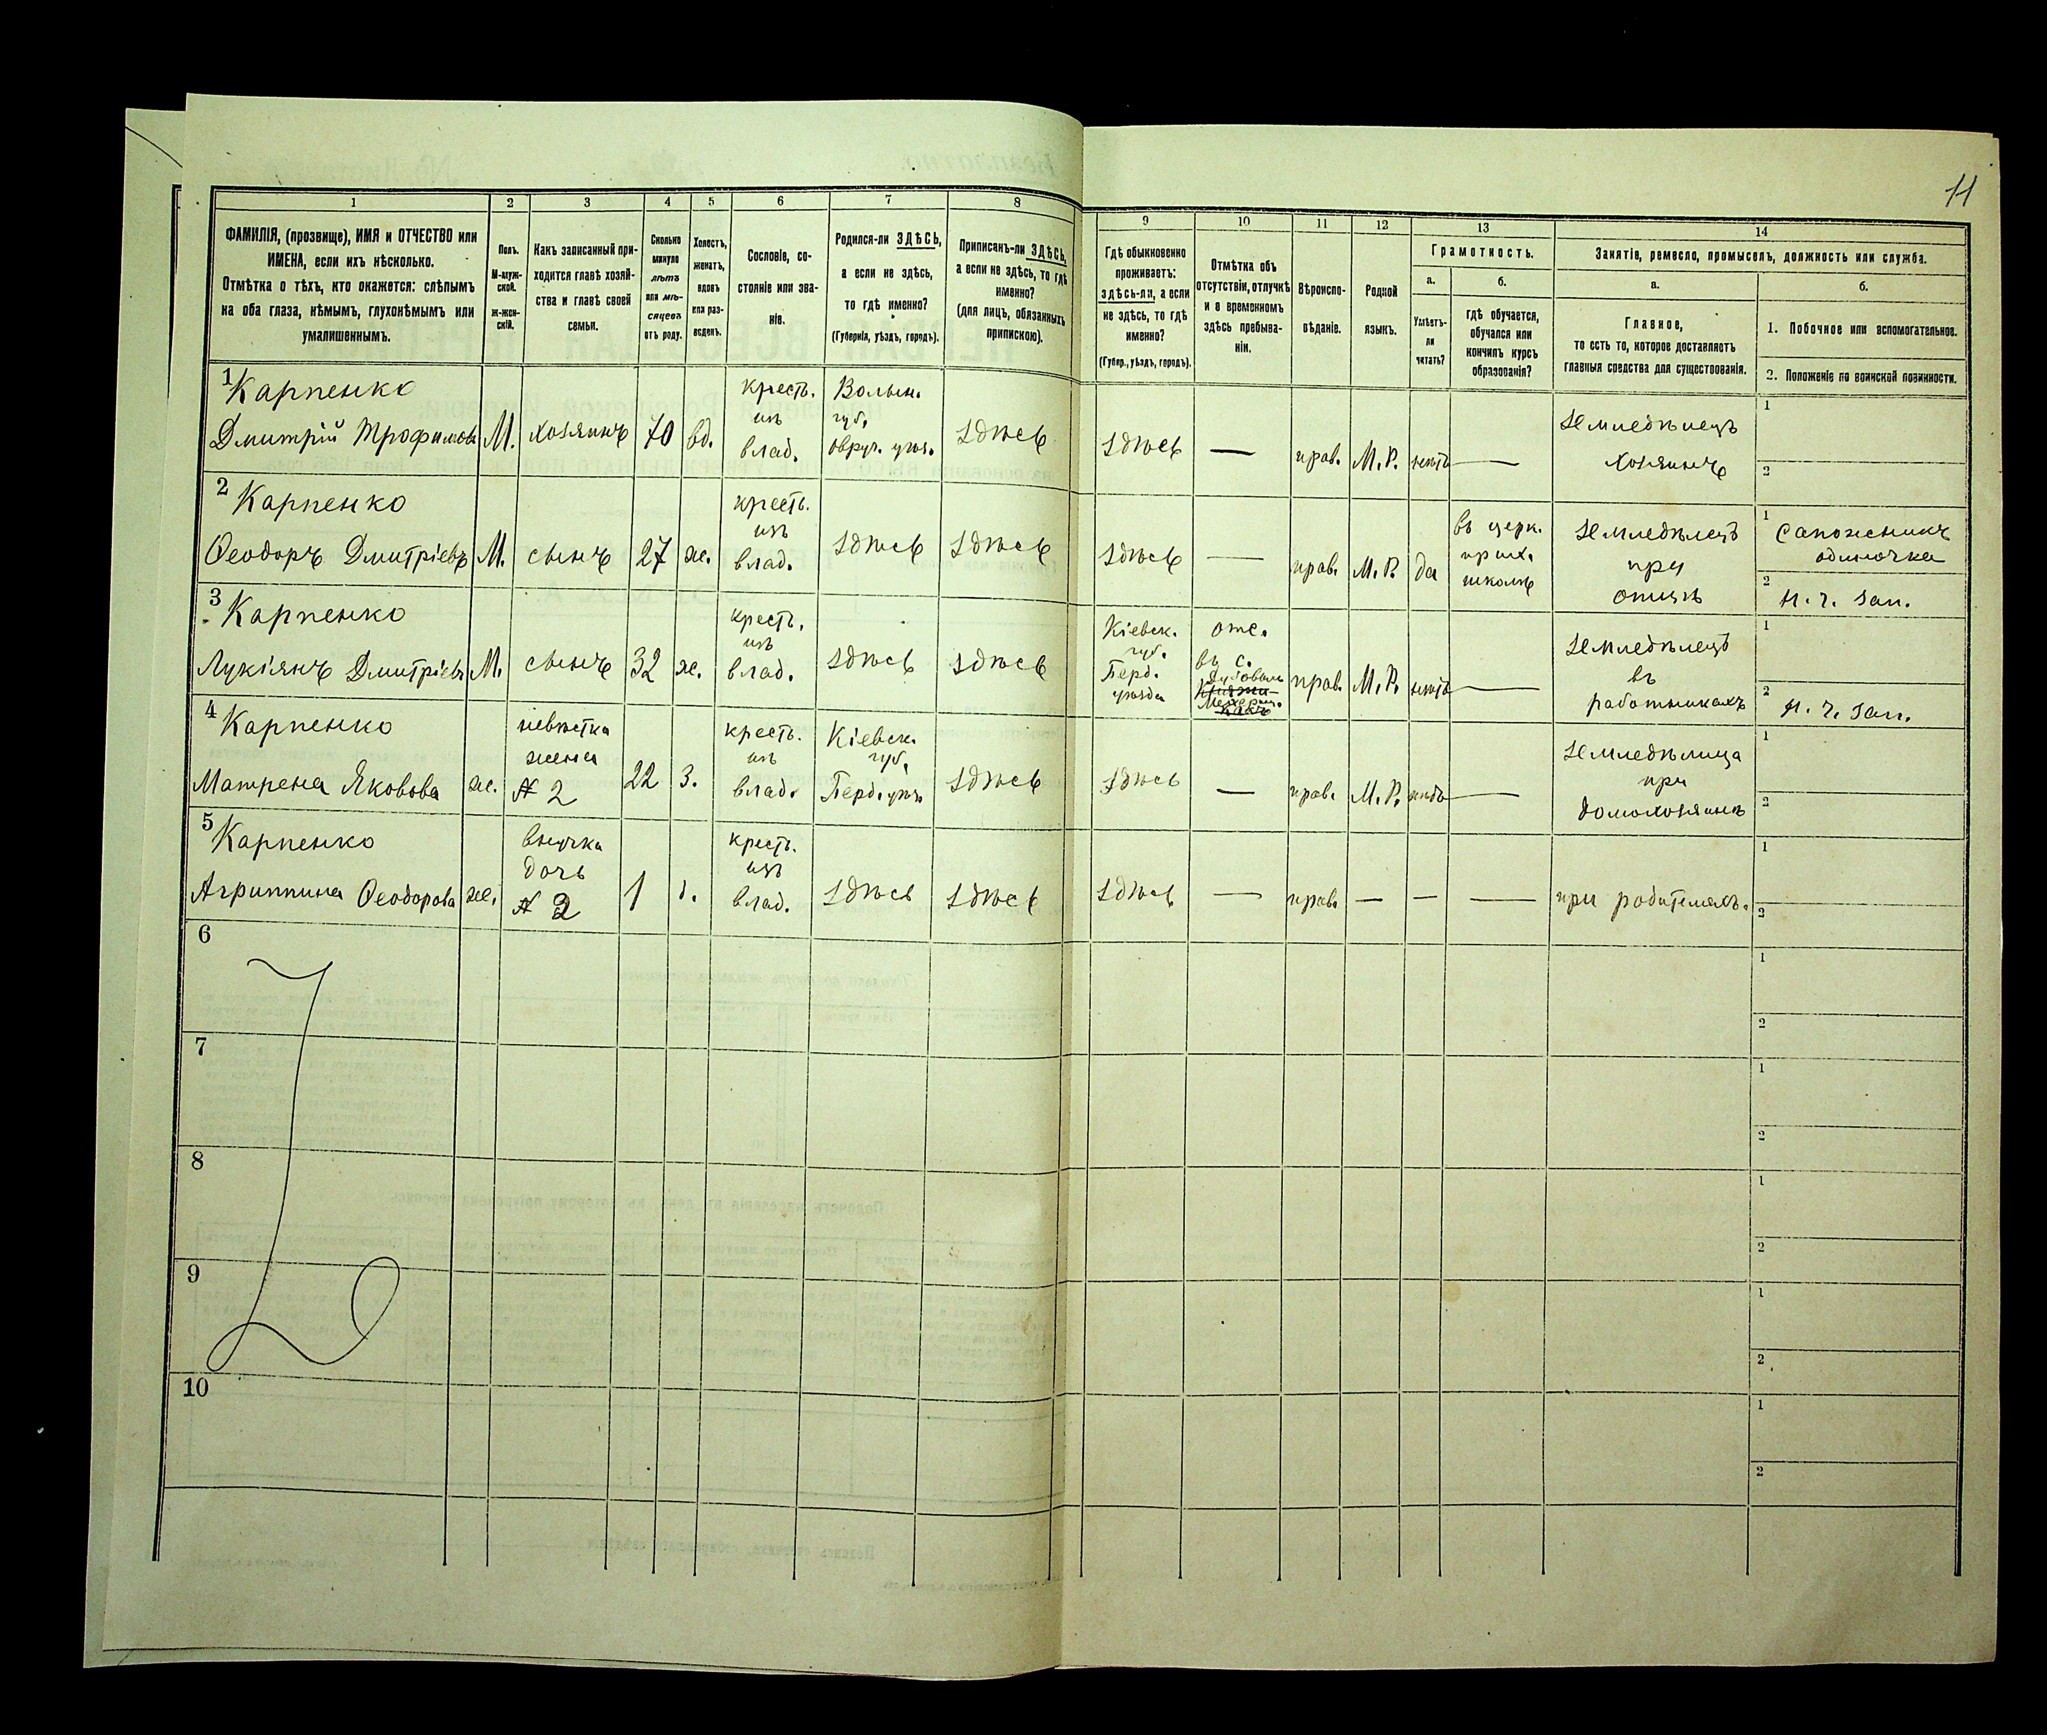 11
1 2 3 4 5 6 7 8 9 10 11 12 13 14
ФАМИЛІЯ, (прозвище), ИМЯ и ОТЧЕСТВО или
ИМЕНА, если ихъ нѣсколько.
Отмѣтка о тѣхъ, кто окажется: слѣпымъ
на оба глаза, нѣмымъ, глухонѣмымъ или
умалишеннымъ.
Полъ.
М-муж-
ской.
ж-жен-
скій.
Какъ записанный при-
ходится главѣ хозяй-
ства и главѣ своей
семьи.
Сколько
минуло
лѣтъ
или мѣ-
сяцевъ
отъ роду.
Холостъ,
женатъ,
вдовъ
или раз-
веденъ.
Сословіе, со-
стояніе или зва-
ніе.
Родился-ли ЗДѢСЬ,
а если не здѣсь,
то гдѣ именно?
(Губернія, уѣздъ, городъ).
Приписанъ-ли ЗДѢСЬ,
а если не здѣсь, то гдѣ
именно?
(для лицъ, обязанныхъ
припискою).
Гдѣ обыкновенно
проживаетъ:
здѣсь-ли, а если
не здѣсь, то гдѣ
именно?
(Губер., уѣздъ, городъ).
Отмѣтка объ
отсутствіи, отлучкѣ
и о временномъ
здѣсь пребыва-
ніи.
Вѣроиспо-
вѣданіе.
Родной
языкъ.
Грамотность.
а.
Умѣетъ-
ли
читать?
б.
гдѣ обучается,
обучался или
кончилъ курсъ
образованія?
Занятіе, ремесло, промыселъ, должность или служба.
а.
Главное,
то есть то, которое доставляетъ
главныя средства для существованія.
б.
1. Побочное или вспомогательное.
2. Положеніе по воинской повинности.
1
Карпенко
Дмитрій Трофимовъ
М.
хозяинъ
70
вд.
крест.
изъ
влад.
Волын.
губ.
Овруч. уѣз.
здѣсь
здѣсь
—
прав.
М. Р.
нѣтъ
—
Земледѣлецъ
хозяинъ
1
2
2
Карпенко
Ѳеодоръ Дмитріевъ
М.
сынъ
27
ж.
крест.
изъ
влад.
здѣсь
здѣсь
здѣсь
—
прав.
М. Р.
да
въ церк.
прих.
школѣ
Земледѣлецъ
при
отцѣ
1
Сапожникъ
одиночка
2
н. ч. зап.
3
Карпенко
Лукіянъ Дмитріевъ
М.
сынъ
32
ж.
крест.
изъ
влад.
здѣсь
здѣсь
Кіевск.
губ.
Берд.
уѣзда
отс.
въ с.
прав.
М. Р.
нѣтъ
—
Земледѣлецъ
въ
работникахъ
1
2
н. ч. зап.
4
Карпенко
Матрена Яковова
ж.
невѣстка
жена
№ 2
22
з.
крест.
изъ
влад.
Кіевск.
губ.
Берд. уѣз.
здѣсь
здѣсь
—
прав.
М. Р.
нѣтъ
—
Земледѣлица
при
домохозяинѣ
1
2
5
Карпенко
Агриппина Ѳеодорова
ж.
внучка
дочь
№ 2
1
д.
крест.
изъ
влад.
здѣсь
здѣсь
здѣсь
—
прав.
—
—
—
при родителяхъ.
1
2
6
1
2
7
1
2
8
1
2
9
1
2
10
1
2